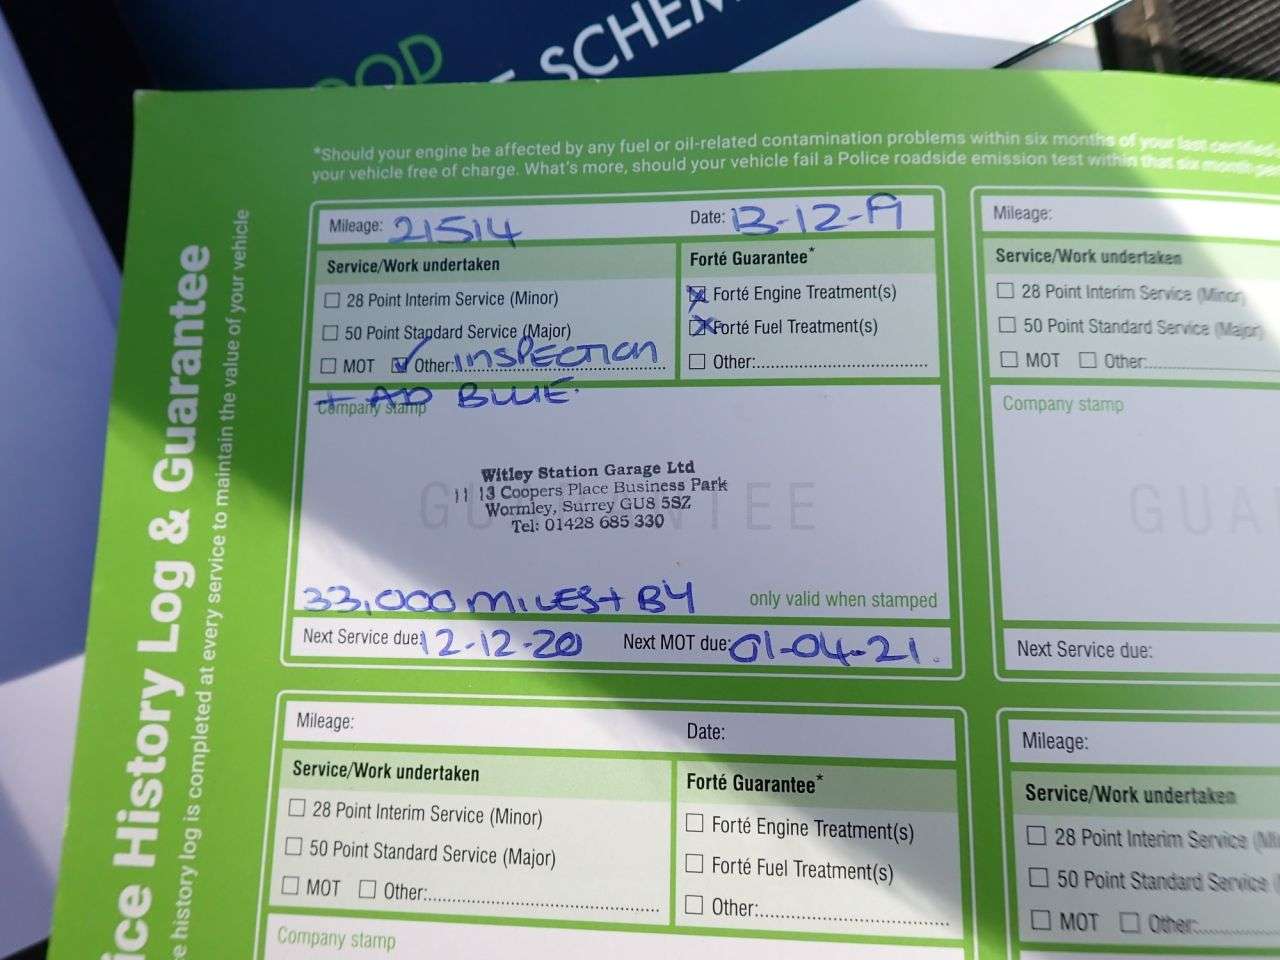 OOD
SCHEM
*Should your engine be affected by any fuel or oil-related contamination problems within six months of your last certified
your vehicle free of charge. What's more, should your vehicle fail a Police roadside emission test within that six month
ice History Log & Guarantee
e history log is completed at every service to maintain the value of your vehicle
Mileage: 21514 Date: 13-12-19
Service/Work undertaken Forté Guarantee*
28 Point Interim Service (Minor) Forté Engine Treatment(s)
50 Point Standard Service (Major) Forté Fuel Treatment(s)
MOT Other: INSPECTION Other:
+ AD BLUE.
Company stamp
GUARANTEE
Witley Station Garage Ltd
11 13 Coopers Place Business Park
Wormley, Surrey GU8 5SZ
Tel: 01428 685 330
33,000 MILES+ BY only valid when stamped
Next Service due: 12-12-20 Next MOT due: 01-04-21.
Mileage:
Service/Work undertaken
28 Point Interim Service (Minor)
50 Point Standard Service (Major)
MOT Other:
Company stamp
GUA
Next Service due:
Mileage: Date:
Service/Work undertaken Forté Guarantee*
28 Point Interim Service (Minor) Forté Engine Treatment(s)
50 Point Standard Service (Major) Forté Fuel Treatment(s)
MOT Other: Other:
Company stamp
Mileage:
Service/Work undertaken
28 Point Interim Service (Mi
50 Point Standard Service
MOT Other: